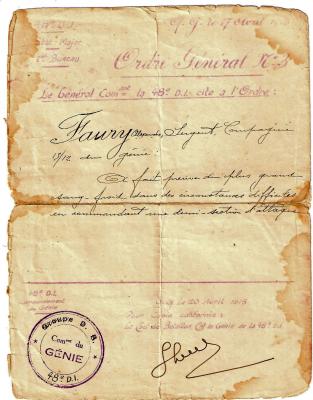 48e D.I.
Etat-Major
1er Bureau
Q.G. le 17 Avril
Ordre Général No 3
Le Général Comdt la 48e D.I. cite à l'Ordre:
Faury Alexandre, Sergent, Compagnie
9/12 du génie:
A fait preuve du plus grand
sang-froid dans des circonstances difficiles
en commandant une demi-section d'attaque
48e D.I.
Commandement
du Génie
le 20 Avril 1915
Pour Copie conforme:
Le de Bataillon, Ct le Génie de la 48e D.I.
Groupe D.B.
Comm. du
GÉNIE
48e D.I.